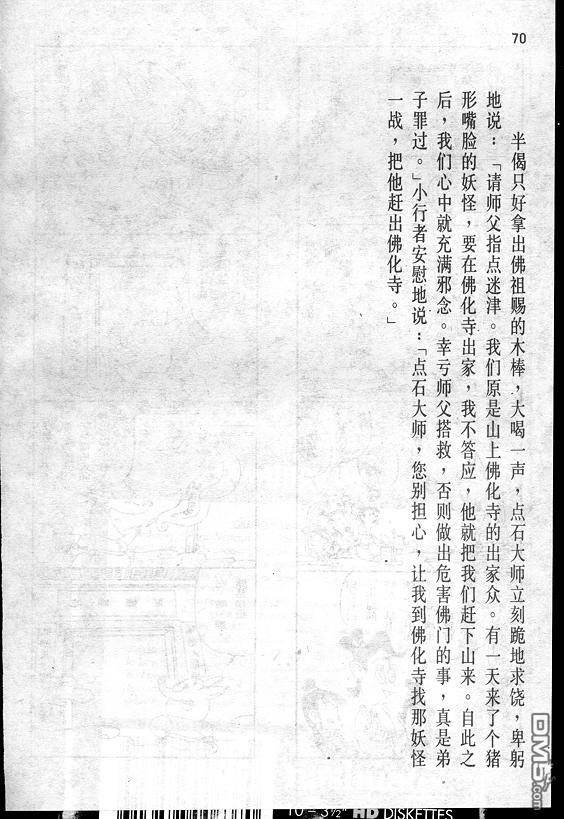 70
半偈只好拿出佛祖赐的木棒，大喝一声，点石大师立刻跪地求饶，卑躬
地说：「请师父指点迷津。我们原是山上佛化寺的出家众。有一天来了个猪
形嘴脸的妖怪，要在佛化寺出家，我不答应，他就把我们赶下山来。自此之
后，我们心中就充满邪念。幸亏师父搭救，否则做出危害佛门的事，真是弟
子罪过。」小行者安慰地说：「点石大师，您别担心，让我到佛化寺找那妖怪
一战，把他赶出佛化寺。」
DM5.com
10 – 3½" HD DISKETTES